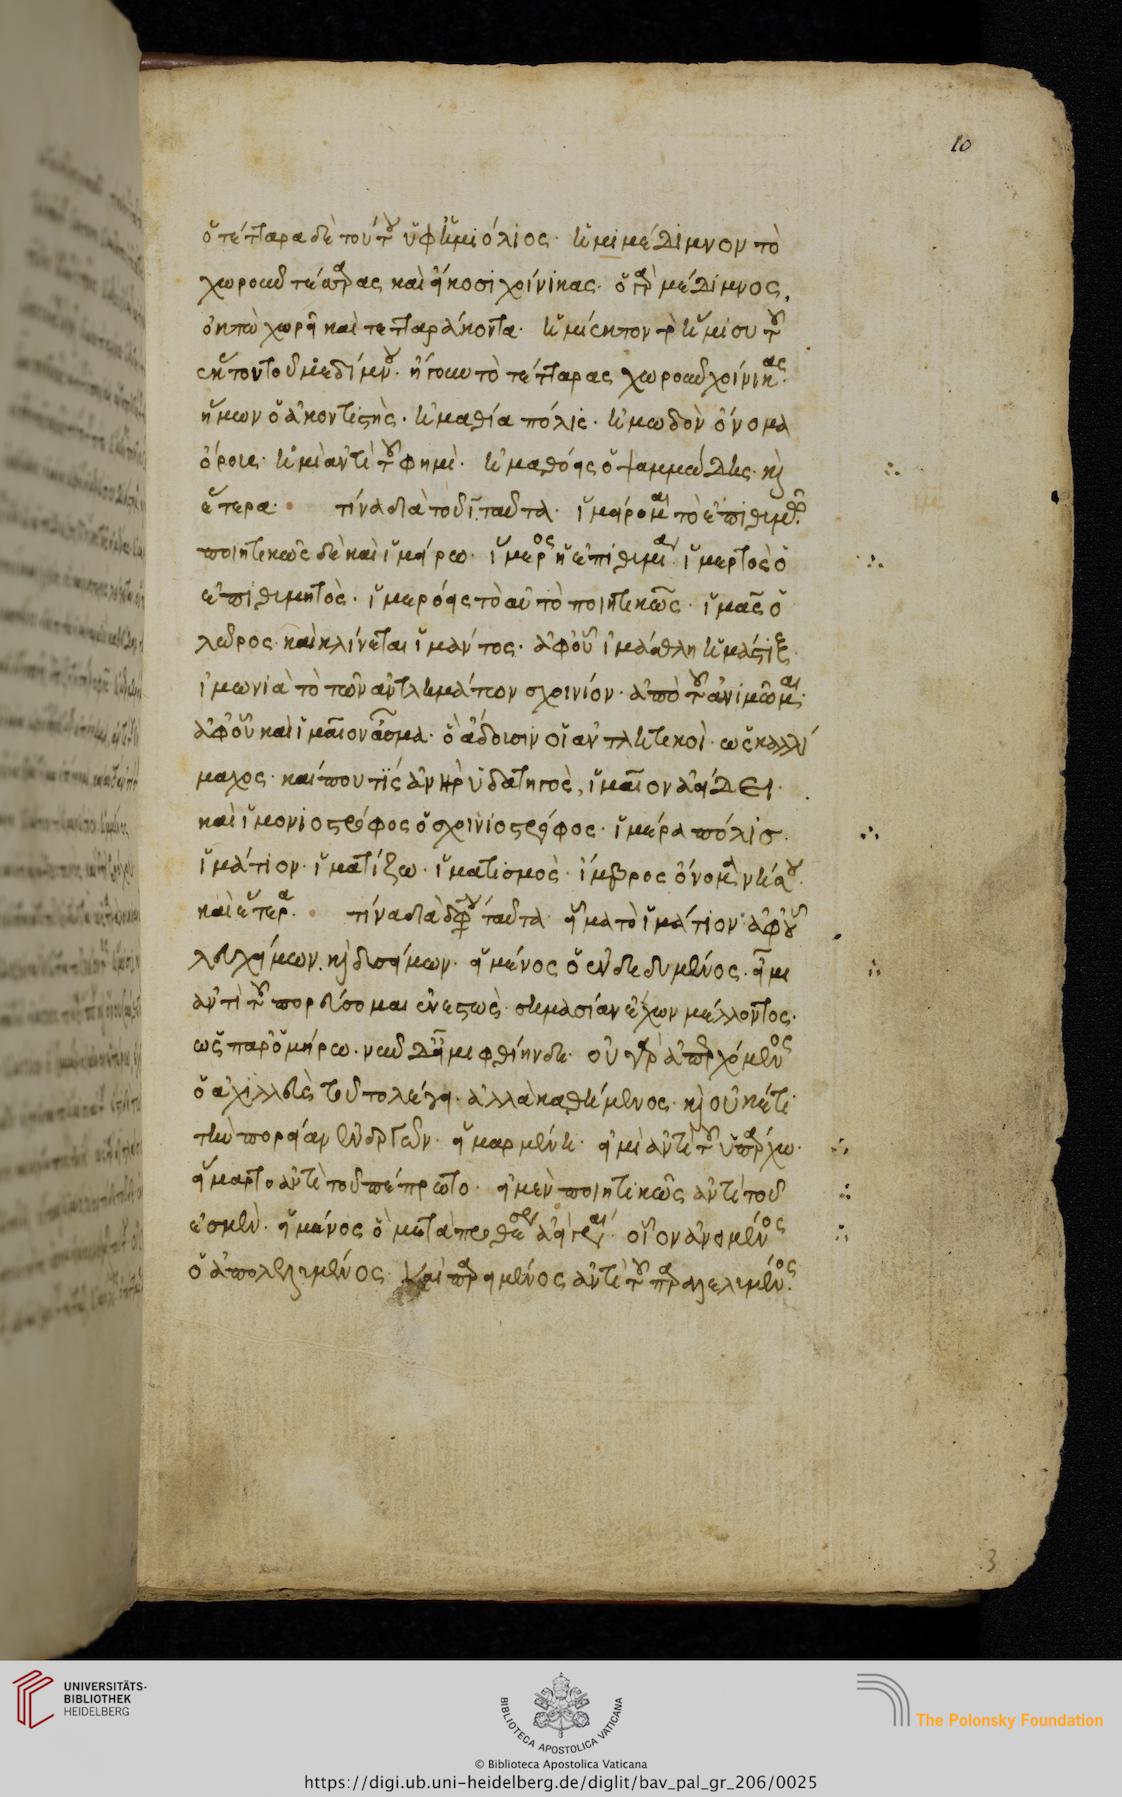 10
ὅτέτταρα δὲ τούτου ὑφημιόλιος· ἡμιμέδιμνον τὸ
χωροῦν τέσσαρας καὶ εἴκοσι χοίνικας· ὁ γὰρ μέδιμνος,
ὀκτὼ χωρεῖ καὶ τετταράκοντα· ἡμίεκτον τὸ ἥμισυ τοῦ
ἕκτου τοῦ μεδίμνου· ἤγουν τὸ τέτταρας χωροῦν χοίνικας·
ἥμων ὁ ἀκοντιστής· ἠμαθία πόλις· ἠμωδὸν ὄνομα
ὄρους· ἠμὶ ἀντὶ τοῦ φημὶ· ἠμαθόεις ὁ ψαμμώδης· καὶ
ἕτερα· τίνα διὰ τοῦ ι ταῦτα· ἱμείρομαι τὸ ἐπιθυμῶ·
ποιητικῶς δὲ καὶ ἱμείρω· ἵμερος ἡ ἐπιθυμία· ἱμερτὸς ὁ
ἐπιθυμητός· ἱμερόεις τὸ αὐτὸ ποιητικῶς· ἱμὰς ὁ
λῶρος· καὶ κλίνεται ἱμάντος· ἀφ' οὗ ἱμάσθλη ἡ μάστιξ·
ἱμωνία τὸ τῶν ἀντλημάτων σχοινίον· ἀπὸ τοῦ ἀνιμῶμαι·
ἀφ' οὗ καὶ ἱμαῖον ἆσμα· ὃ ἄδουσιν οἱ ἀντλητικοὶ· ὡς καλλί
μαχος· καί που τὶς ἀνὴρ ὑδατηγὸς, ἱμαῖον ἀείδει·
καὶ ἱμονιοστρόφος ὁ σχοινιοστρόφος· ἱμέρα πόλις·
ἱμάτιον· ἱματίζω· ἱματισμὸς· ἴμβρος ὄνομα νήσου·
καὶ ἕτερα· τίνα διὰ διφθόγγου ταῦτα· εἷμα τὸ ἱμάτιον ἀφ' οὗ
λευχείμων· καὶ δυσείμων· εἱμένος ὁ ἐνδεδυμένος· εἶμι
ἀντὶ τοῦ πορεύσομαι ἐνεστὼς σημασίαν ἔχων μέλλοντος·
ὡς παρ' ὁμήρω· νῦν δ' εἶμι φθίηνδε· οὐ γὰρ ἀπερχόμενος
ὁ ἀχιλλεὺς τοῦτο λέγει· ἀλλὰ καθήμενος· καὶ οὐκέτι
τὴν πορείαν ἐνεργῶν· εἱμαρμένη· εἰμὶ ἀντὶ τοῦ ὑπάρχω·
εἵμαρτο ἀντὶ τοῦ πέπρωτο· εἰμὲν ποιητικῶς ἀντὶ τοῦ
ἐσμὲν· εἱμένος ὁ μετὰ προθέσεως ἀεὶ λέγεται· οἷον ἀνειμένος
ὁ ἀπολελυμένος· καὶ παρειμένος ἀντὶ τοῦ παραλελυμένος·
3
UNIVERSITÄTS-
BIBLIOTHEK
HEIDELBERG
BIBLIOTECA APOSTOLICA VATICANA
The Polonsky Foundation
© Biblioteca Apostolica Vaticana
https://digi.ub.uni-heidelberg.de/diglit/bav_pal_gr_206/0025